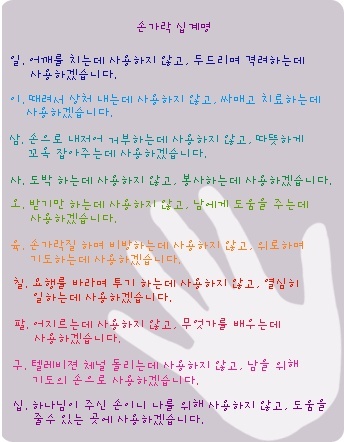 손가락 십계명
일. 어깨를 치는데 사용하지 않고, 두드리며 격려하는데
사용하겠습니다.
이. 때려서 상처 내는데 사용하지 않고, 싸매고 치료하는데
사용하겠습니다.
삼. 손으로 내저어 거부하는데 사용하지 않고, 따뜻하게
꼬옥 잡아주는데 사용하겠습니다.
사. 도박 하는데 사용하지 않고, 봉사하는데 사용하겠습니다.
오. 받기만 하는데 사용하지 않고, 남에게 도움을 주는데
사용하겠습니다.
육. 손가락질 하며 비방하는데 사용하지 않고, 위로하며
기도하는데 사용하겠습니다.
칠. 요행를 바라며 투기 하는데 사용하지 않고, 열심히
일하는데 사용하겠습니다.
팔. 어지르는데 사용하지 않고, 무엇가를 배우는데
사용하겠습니다.
구. 텔레비젼 채널 돌리는데 사용하지 않고, 남을 위해
기도의 손으로 사용하겠습니다.
십. 하나님이 주신 손이니 나를 위해 사용하지 않고, 도움을
줄수 있는 곳에 사용하겠습니다.